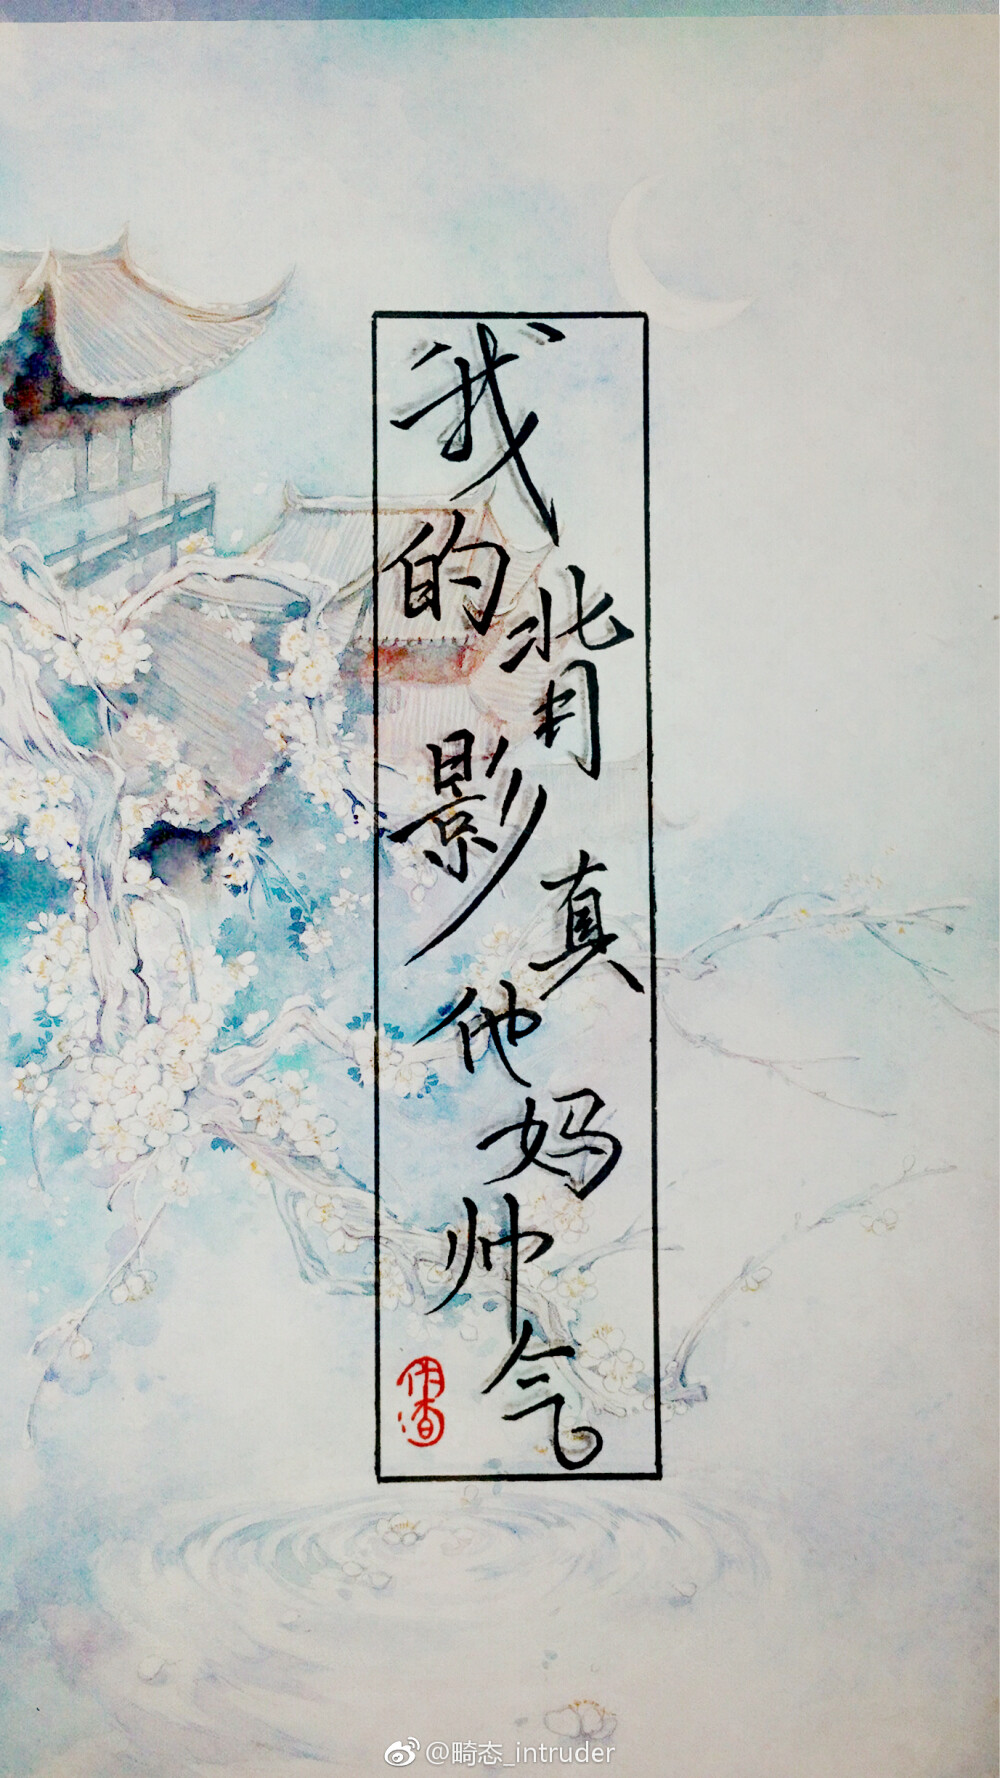 我的背影真他妈帅气
@畸态_intruder